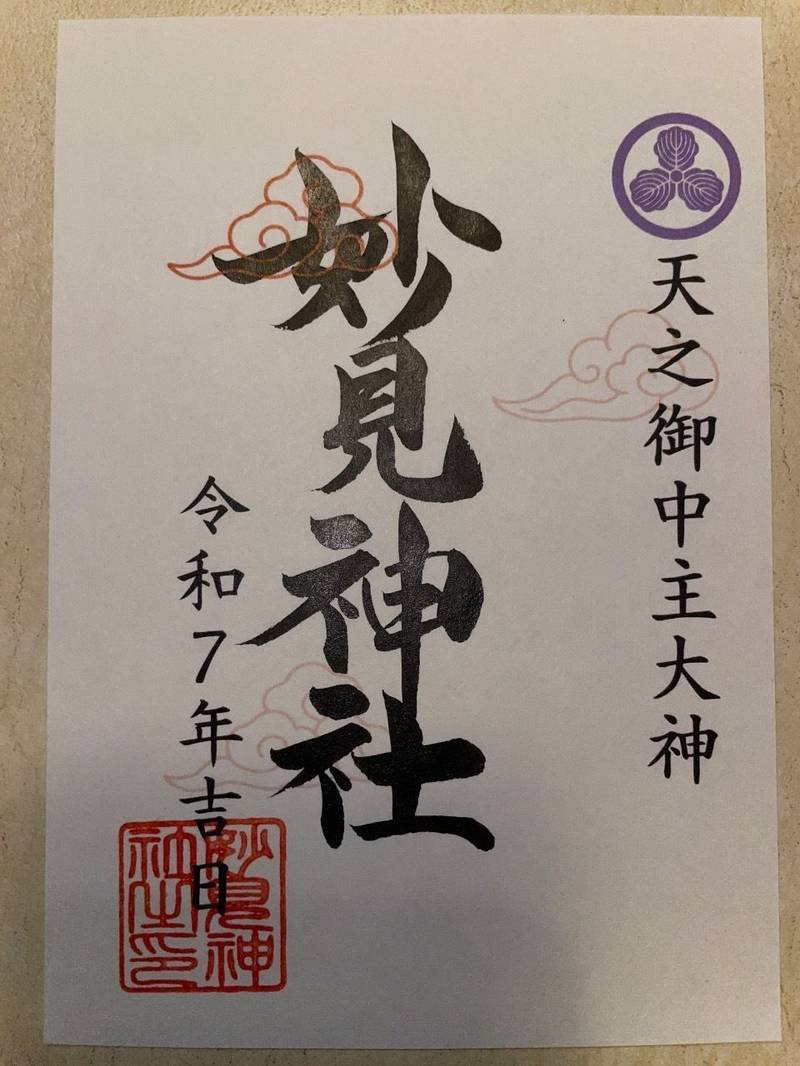 天之御中主大神
妙見神社
令和7年吉日
妙見神
社之印